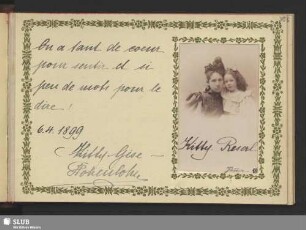 On a tant de coeur
pour sentir et si
peu de mots pour le
dire!
6.4.1899
Kitty Rosal
SLUB
Wir führen Wissen.